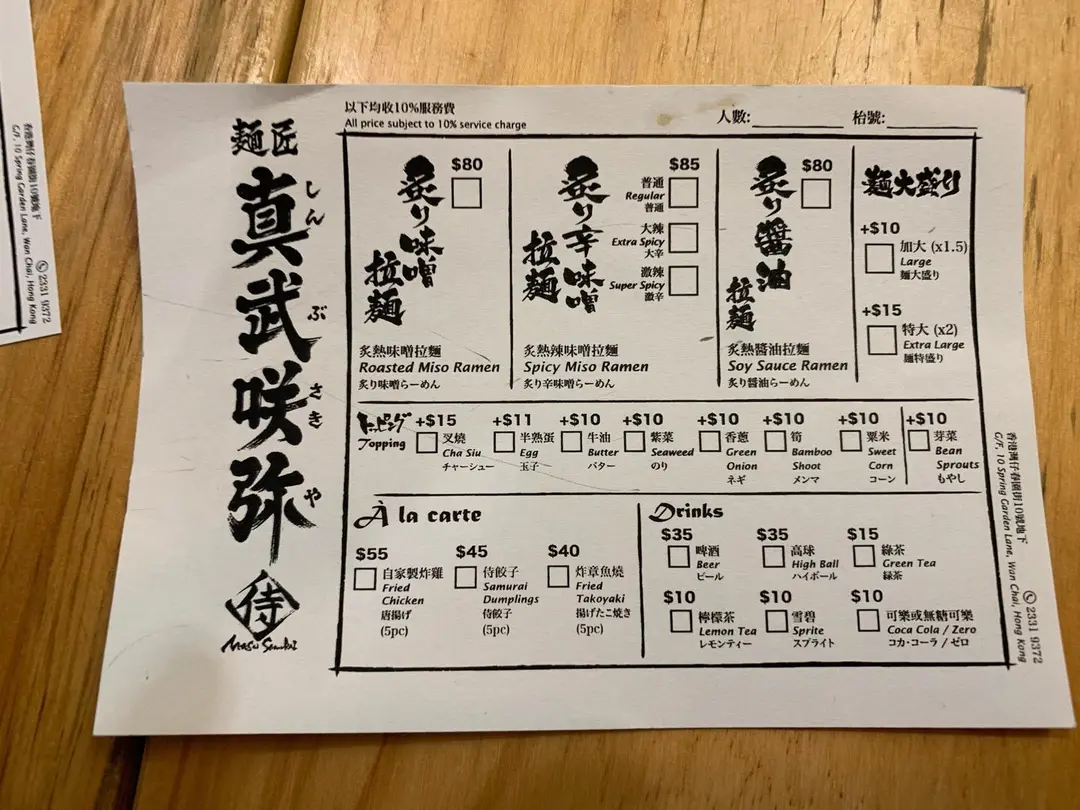 麵匠
真武咲弥
しん
ぶ
さき
や
侍
以下均收10%服務費
All price subject to 10% service charge
人數:
枱號:
炙り味噌
拉麵
$80
炙熱味噌拉麵
Roasted Miso Ramen
炙り味噌らーめん
炙り辛味噌
拉麵
$85
普通
Regular
普通
大辣
Extra Spicy
大辛
激辣
Super Spicy
激辛
炙熱辣味噌拉麵
Spicy Miso Ramen
炙り辛味噌らーめん
炙り醤油
拉麵
$80
炙熱醬油拉麵
Soy Sauce Ramen
炙り醤油らーめん
麺大盛り
+$10
加大 (x1.5)
Large
麺大盛り
+$15
特大 (x2)
Extra Large
麺特盛り
トッピング
Topping
+$15
叉燒
Cha Siu
チャーシュー
+$11
半熟蛋
Egg
玉子
+$10
牛油
Butter
バター
+$10
紫菜
Seaweed
のり
+$10
香蔥
Green
Onion
ネギ
+$10
筍
Bamboo
Shoot
メンマ
+$10
粟米
Sweet
Corn
コーン
+$10
芽菜
Bean
Sprouts
もやし
À la carte
$55
自家製炸雞
Fried
Chicken
唐揚げ
(5pc)
$45
侍餃子
Samurai
Dumplings
侍餃子
(5pc)
$40
炸章魚燒
Fried
Takoyaki
揚げたこ焼き
(5pc)
Drinks
$35
啤酒
Beer
ビール
$35
高球
High Ball
ハイボール
$15
綠茶
Green Tea
緑茶
$10
檸檬茶
Lemon Tea
レモンティー
$10
雪碧
Sprite
スプライト
$10
可樂或無糖可樂
Coca Cola / Zero
コカ·コーラ / ゼロ
香港灣仔春園街10號地下
G/F, 10 Spring Garden Lane, Wan Chai, Hong Kong
2331 9372
香港灣仔春園街10號地下
G/F, 10 Spring Garden Lane, Wan Chai, Hong Kong
2331 9372